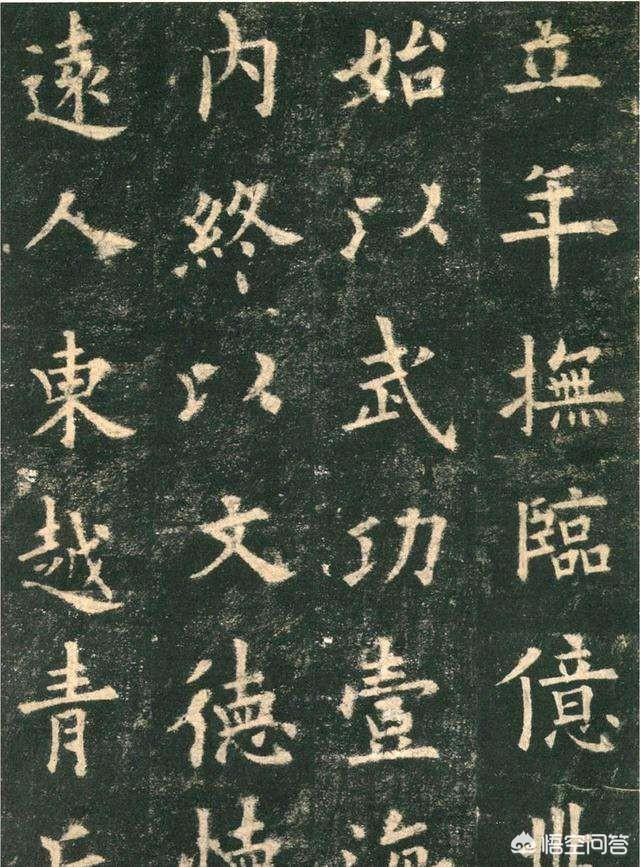 立年撫臨億
始以武功壹海
内終以文德懷
遠人東越青
悟空问答